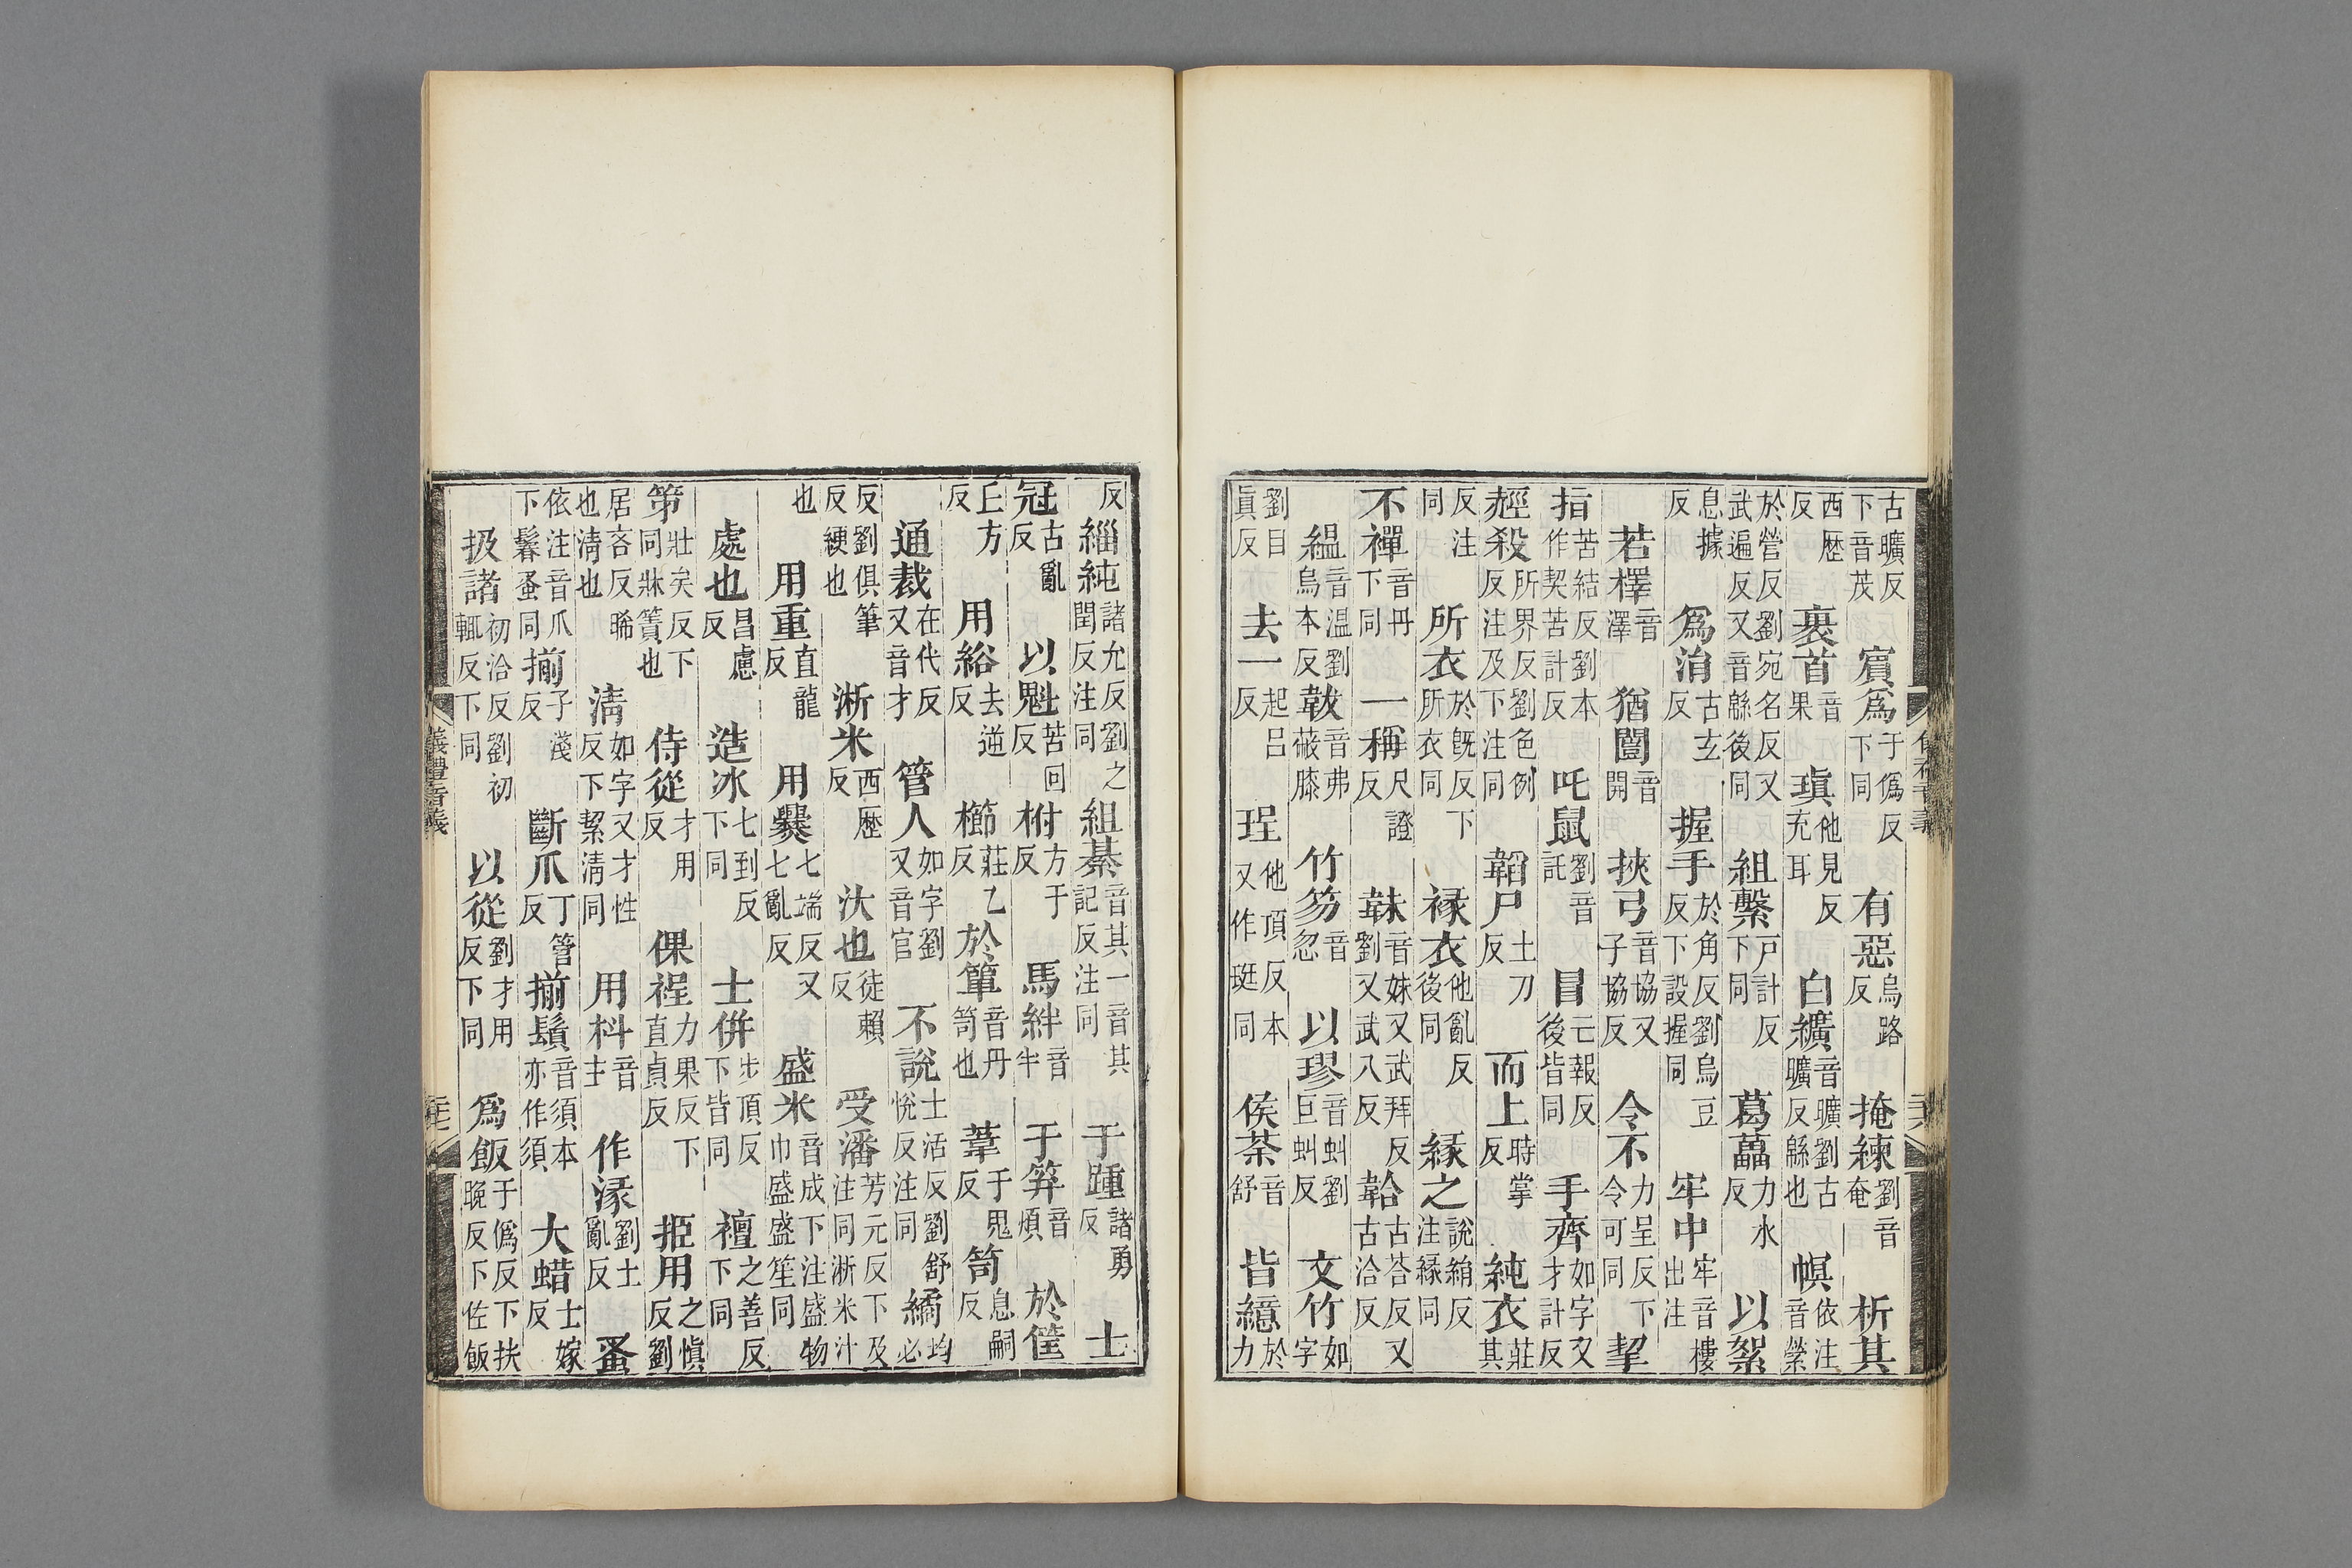 古曠反下音茂 賔爲于僞反下同 有惡烏路反 掩練劉音奄 析其
西歷反 裹首音果 瑱他見反充耳 白纊音曠劉古曠反緜也 幎依注音縈
於營反劉宛名反又武遍反又音緜後同 組繫戸計反下同 葛藟力水反 以絮
息據反 爲㳙古玄反 握手於角反劉烏豆反下設握同 牢中牢音樓出注
若檡音澤 猶闓音開 挾弓音協又子協反 令不力呈反下令可同 挈
指苦結反劉本作契苦計反 吒鼠劉音託 冒亡報反後皆同 手齊如字又才計反
䞓殺所界反劉色例反注及下注同 韜尸土刀反 而上時掌反 純衣莊其
反注同 所衣於旣反下所衣同 褖衣他亂反後同 縁之說絹反注縁同
不襌音丹下同 一稱尺證反 韎音妹又武拜反劉又武八反 韐古荅反又古洽反
緼音温劉烏本反 韍音弗蔽膝 竹笏音忽 以璆音虯劉巨虯反 文竹如字
劉目眞反 去一起呂反 珵他頂反本又作珽同 侯荼音舒 皆繶於力
儀禮音義
反 緇純諸允反劉之閏反注同 組綦音其一音其記反注同 于踵諸勇反 士
冠古亂反 以魁苦回反 柎方于反 馬絆音半 于笲音煩 於筐
丘方反 用綌去逆反 櫛莊乙反 於簞音丹笥也 葦于鬼反 笥息嗣反
通裁在代反又音才 管人如字劉又音官 不說士活反劉舒恱反注同 繘均必
反劉俱筆反綆也 淅米西歷反 汏也徒賴反 受潘芳元反下及注同淅米汁
也 用重直龍反 用爨七端反又七亂反 盛米音成下注盛物巾盛盛笙同
處也昌慮反 造冰七到反下同 士併步頂反下皆同 襢之善反下同
第壯矣反下同牀簀也 侍從才用反 倮裎力果反下直貞反 挋用之愼反劉
居吝反晞也淸也 淸如字又才性反下絜淸同 用枓音主 作湪劉土亂反 蚤
依注音爪下鬠蚤同 揃子淺反 斷爪丁管反 揃鬚音須本亦作須 大蜡士嫁反
扱諸初洽反劉初輒反下同 以從劉才用反下同 爲飯于僞反下扶晚反下佐飯
儀禮音義